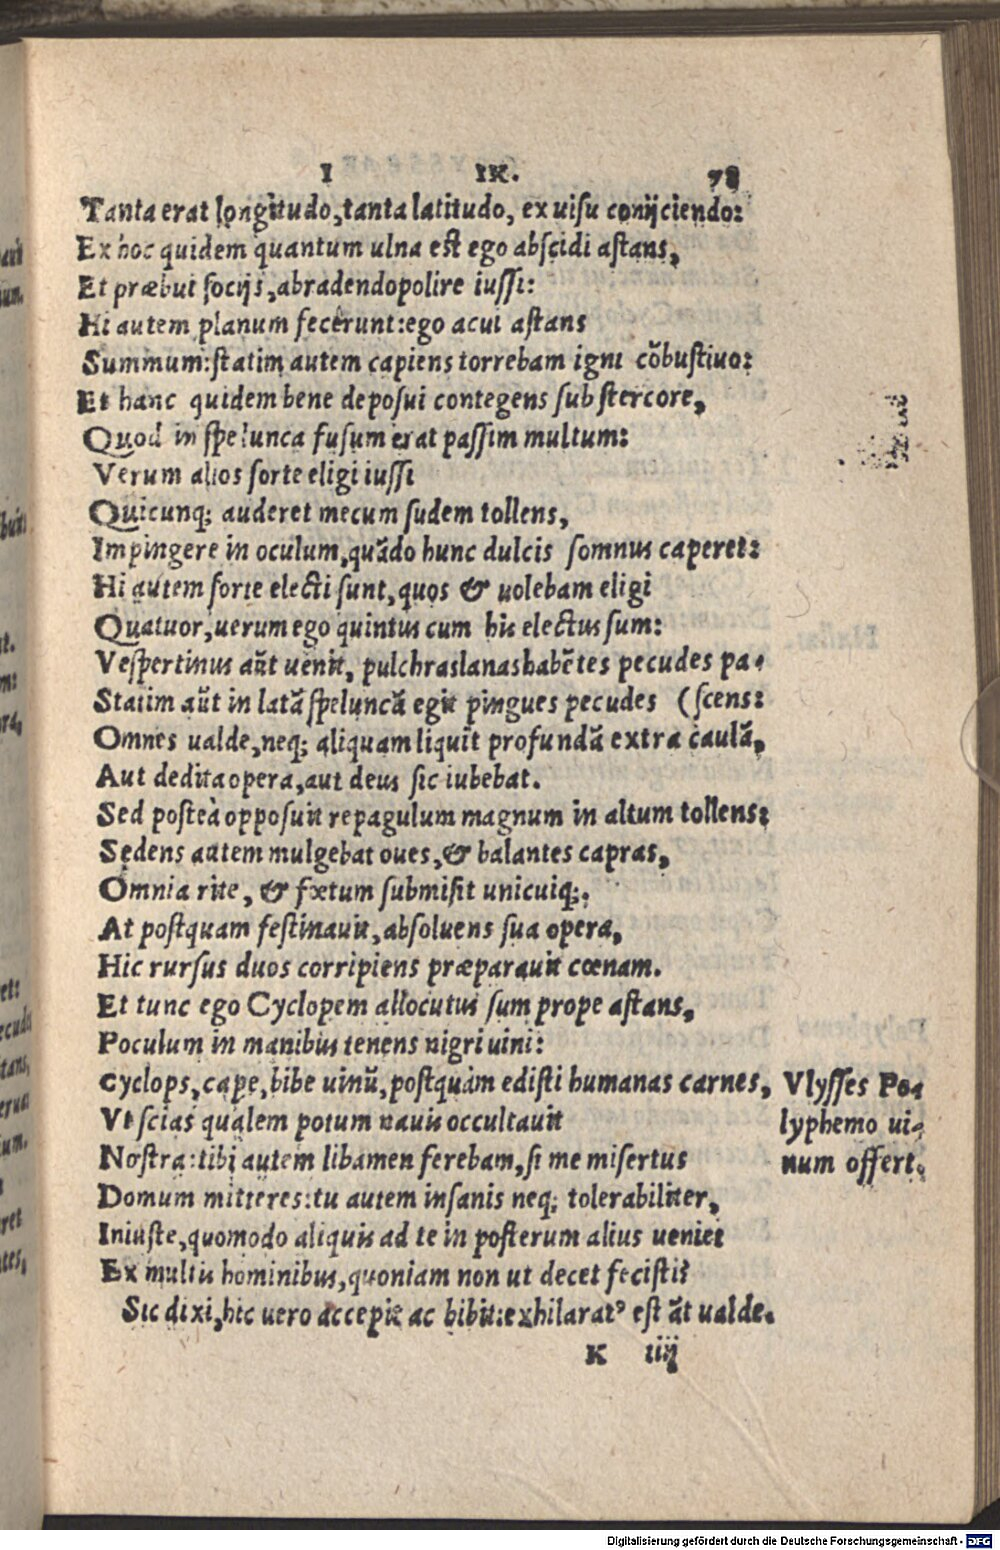 I IX. 78
Tanta erat longitudo, tanta latitudo, ex uisu conijciendo:
Ex hoc quidem quantum ulna est ego abscidi astans,
Et præbui socijs, abradendo polire iussi:
Hi autem planum fecerunt: ego acui astans
Summum: statim autem capiens torrebam igni cõbustiuo:
Et hanc quidem bene deposui contegens sub stercore,
Quod in spelunca fusum erat passim multum:
Verum alios sorte eligi iussi
Quicunq; auderet mecum sudem tollens,
Impingere in oculum, quãdo hunc dulcis somnus caperet:
Hi autem sorte electi sunt, quos & uolebam eligi
Quatuor, uerum ego quintus cum his electus sum:
Vespertinus aũt uenit, pulchras lanas habẽtes pecudes pa-
Statim aũt in latã speluncã egit pingues pecudes (scens:
Omnes ualde, neq; aliquam liquit profundã extra caulã,
Aut dedita opera, aut deus sic iubebat.
Sed posteà opposuit repagulum magnum in altum tollens:
Sedens autem mulgebat oues, & balantes capras,
Omnia rite, & fœtum submisit unicuiq;.
At postquam festinauit, absoluens sua opera,
Hic rursus duos corripiens præparauit cœnam.
Et tunc ego Cyclopem allocutus sum prope astans,
Poculum in manibus tenens nigri uini:
Cyclops, cape, bibe uinũ, postquam edisti humanas carnes,
Vt scias qualem potum nauis occultauit
Nostra: tibi autem libamen ferebam, si me misertus
Domum mitteres: tu autem insanis neq; tolerabiliter,
Iniuste, quomodo aliquis ad te in posterum alius ueniet
Ex multis hominibus, quoniam non ut decet fecisti?
Sic dixi, hic uero accepit ac bibit: exhilarat⁹ est ãt ualde.
Vlysses Po-
lyphemo ui-
num offert.
K iiij
Digitalisierung gefördert durch die Deutsche Forschungsgemeinschaft - DFG